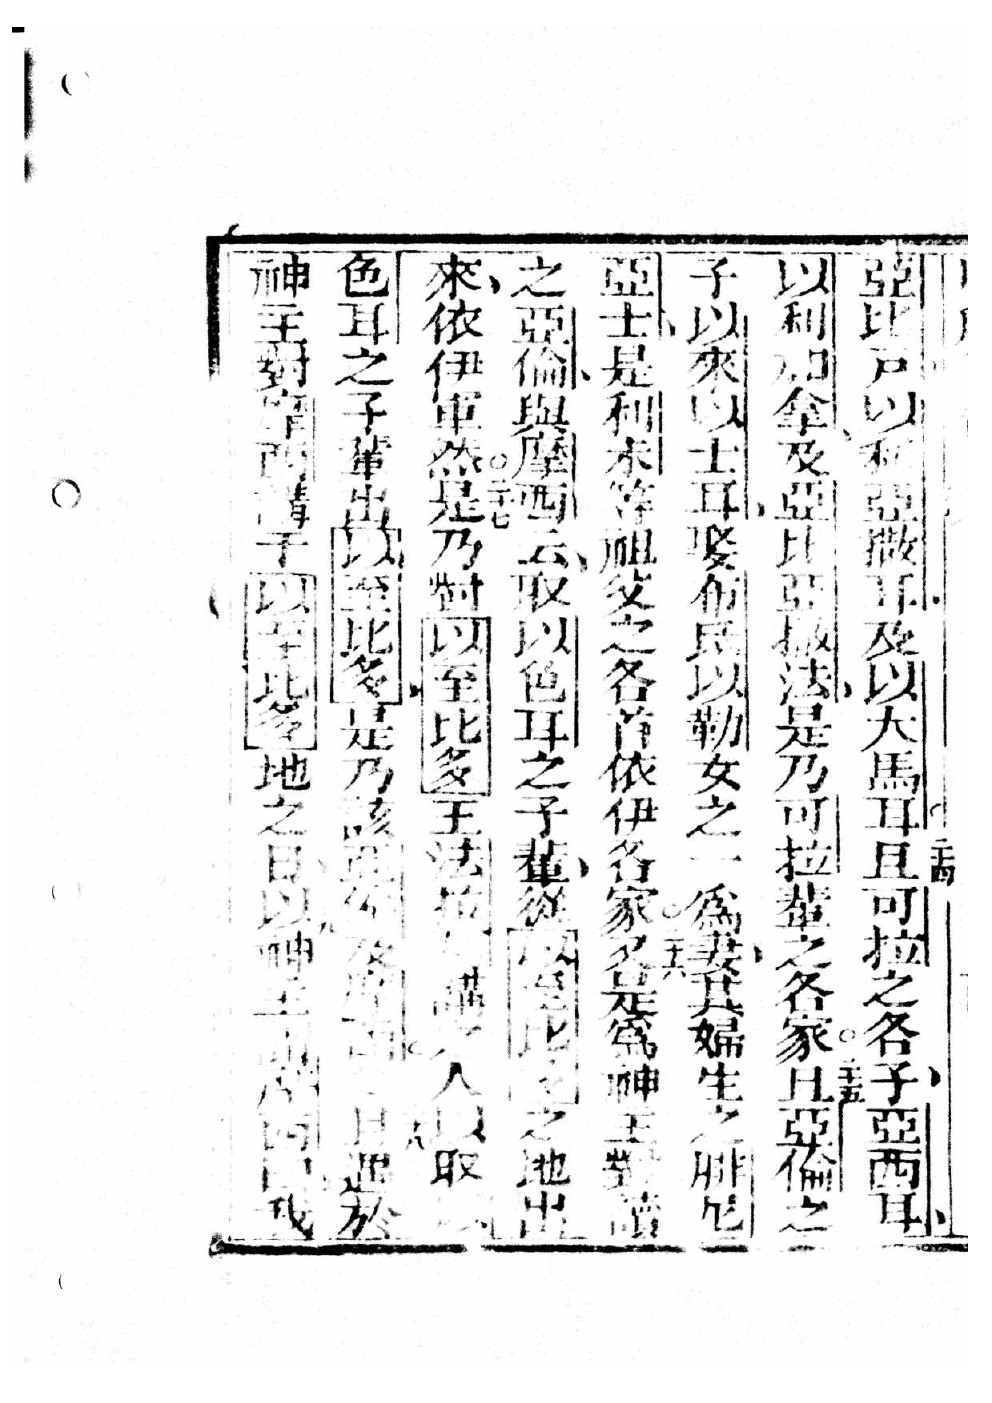 亞比戶以利亞撒耳及以大馬耳○二十四且可拉之各子亞西耳
以利加拿及亞比亞撒法是乃可拉輩之各家○二十五且亞倫之
子以來以士耳娶布氏以勒女之一爲妻其婦生之腓尼
亞士是利未等祖父之各首依伊各家○二十六名是爲神主對
之亞倫與摩西云取以色耳之子輩從以至比多之地出
來依伊軍然○二十七是乃對以至比多王法拉 講 人以取
色耳之子輩出以至比多是乃該亞倫及摩西○二十八且遇於
神主對摩西講于以至比多地之日以神主 摩西曰我